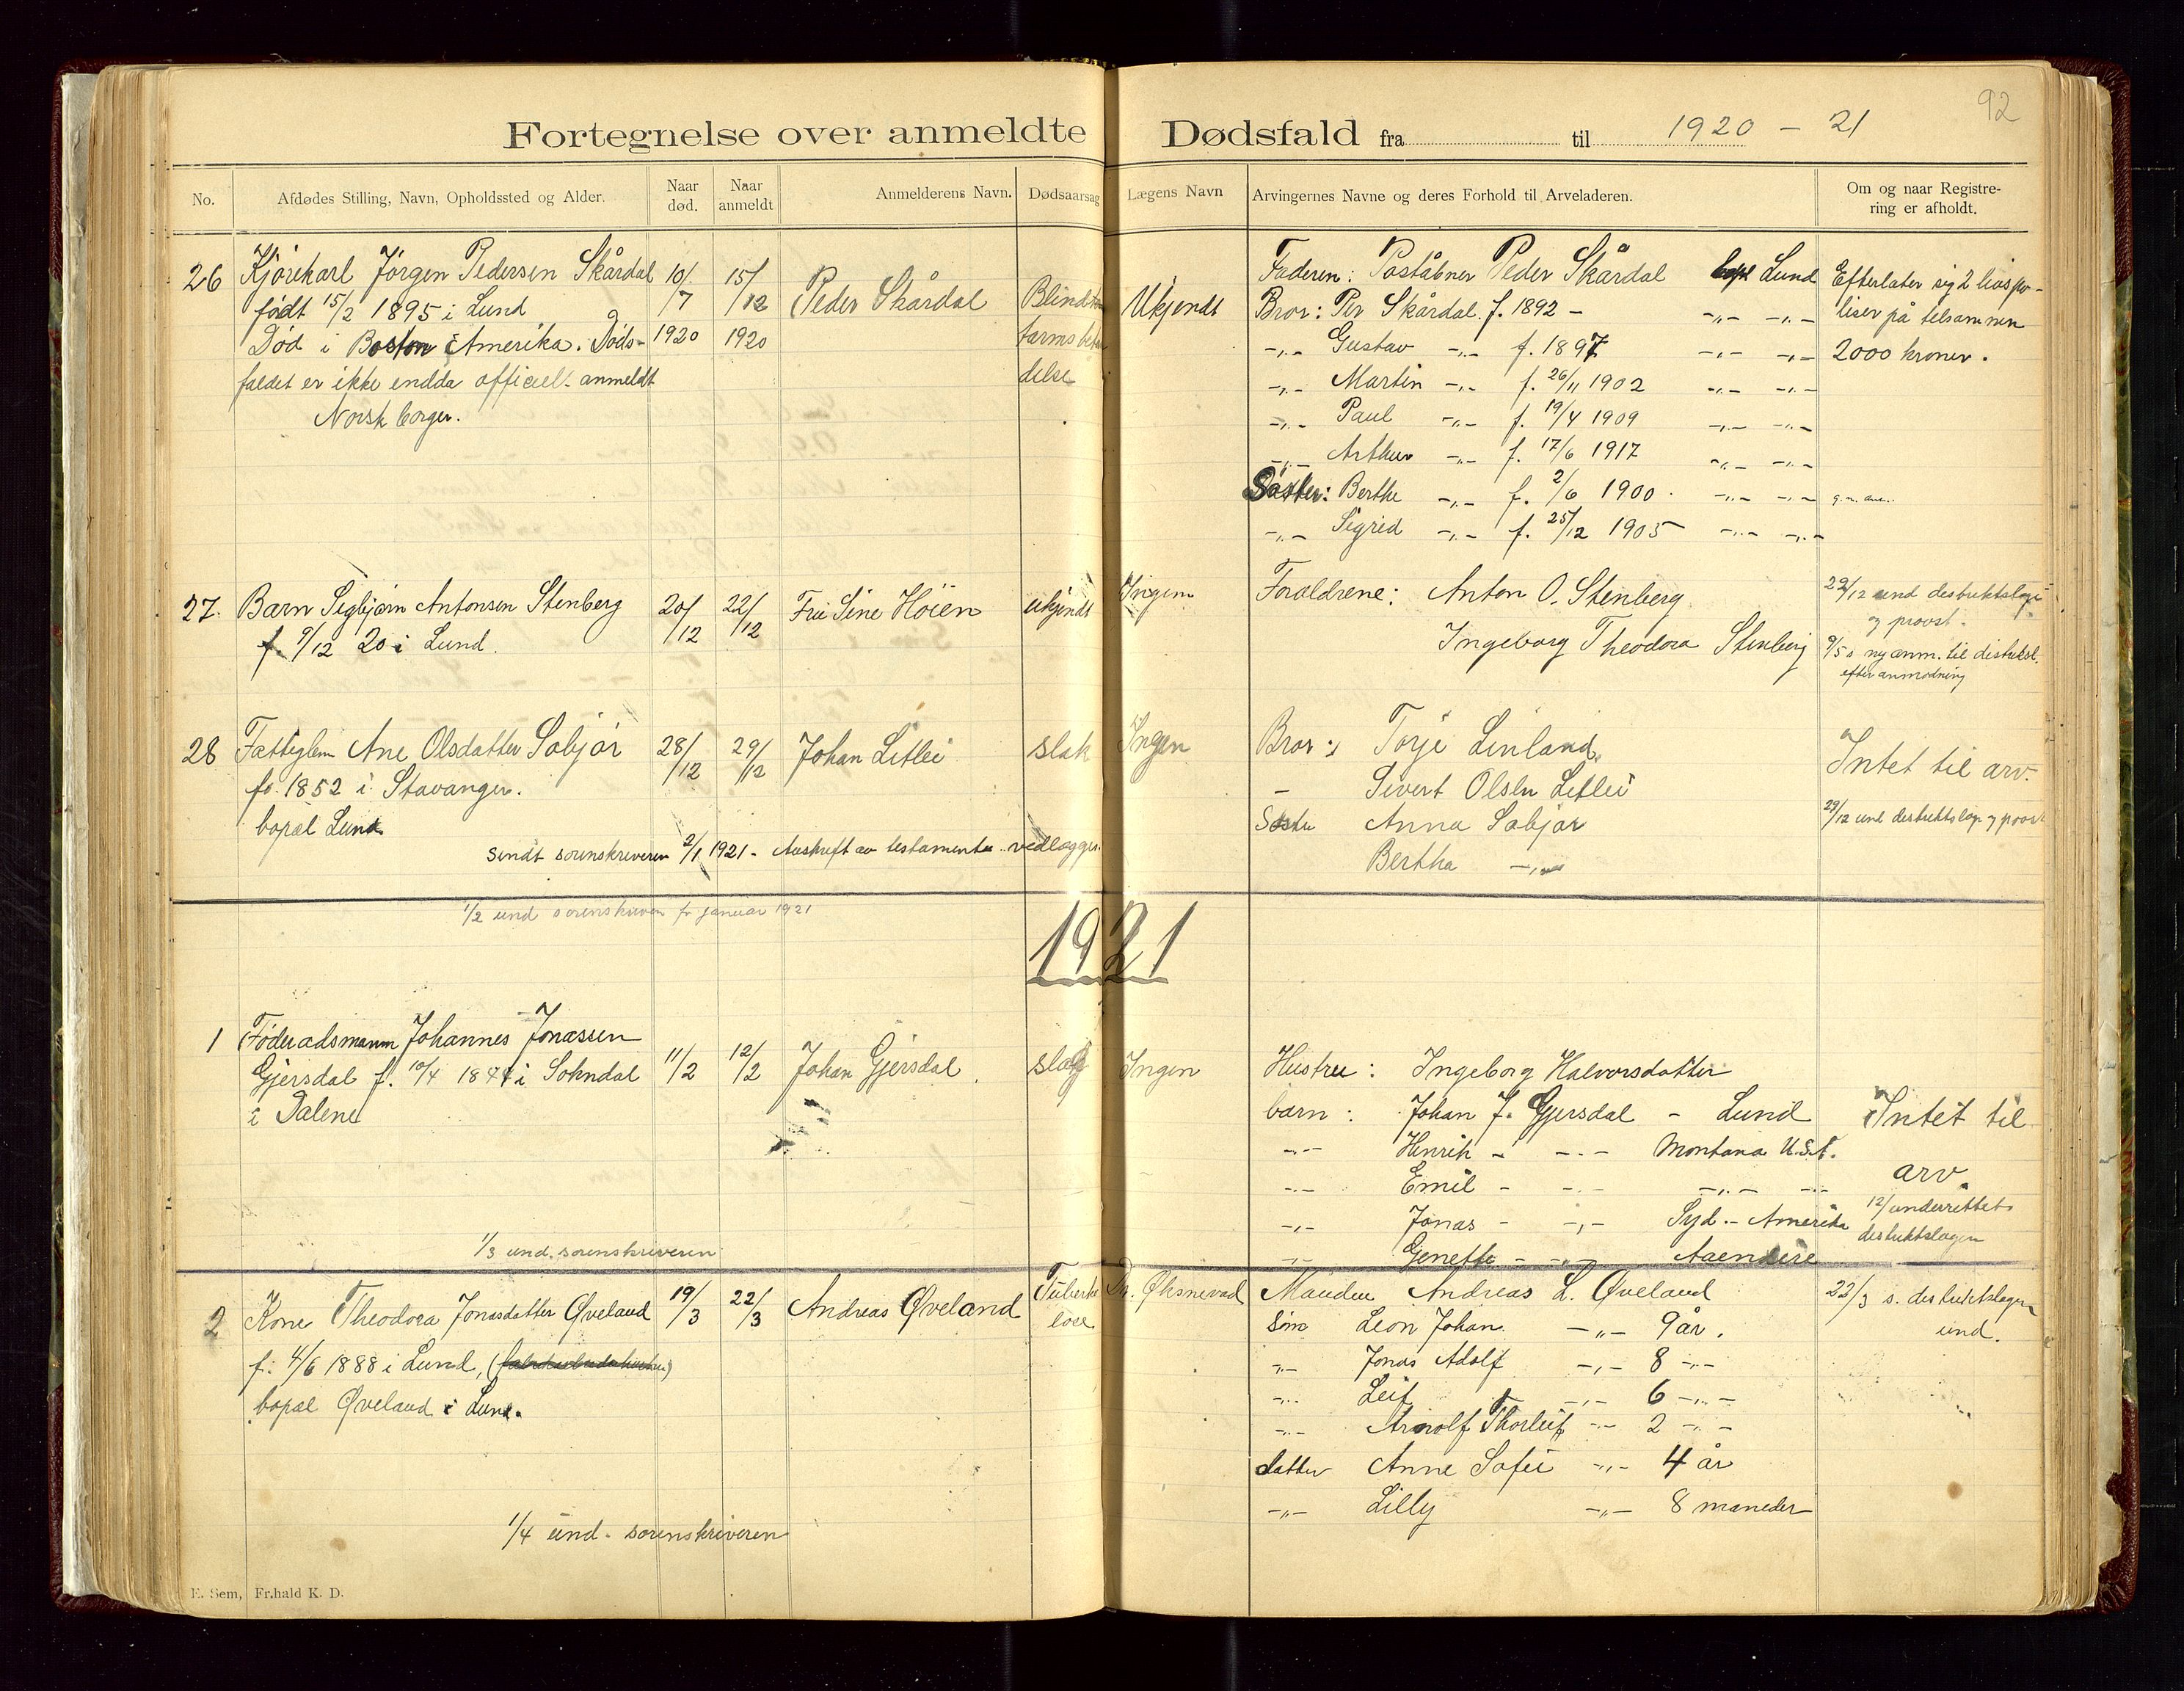 92
Fortegnelse over anmeldte Dødsfald fra til 1920 - 21
No.
Afdødes Stilling, Navn, Opholdssted og Alder.
Naar død.
Naar anmeldt
Anmelderens Navn.
Dødsaarsag
Lægens Navn
Arvingernes Navne og deres Forhold til Arveladeren.
Om og naar Registrering er afholdt.
26
Kjørekarl Jørgen Pedersen Skårdal
født 15/2 1895 i Lund
Død i Boston i Amerika. Døds-
faldet er ikke endda officielt anmeldt
Norsk borger.
10/7 1920
15/12 1920
Peder Skårdal
Blind
tarms
delse
Ukjendt
Faderen: Poståbner Peder Skårdal Lund
Bror: Per Skårdal f. 1892 - -„- -„-
-„- Gustav -„- f. 1897 -„- -„-
-„- Martin -„- f. 26/11 1902 -„- -„-
-„- Paul -„- f. 19/4 1909 -„- -„-
-„- Arthur -„- f. 17/6 1917 -„- -„-
Søster: Berthe -„- f. 2/6 1900 -„- -„-
-„- Sigrid -„- f. 25/12 1905 -„- -„-
Efterlater sig 2 livspo-
liser på tilsammen
2000 kroner.
27.
Barn Sigbjørn Antonsen Stenberg
f. 9/12 20 i Lund.
20/12
22/12
Fru Sine Høien
ukjendt
Ingen
Forældrene: Anton O. Stenberg
Ingeborg Theodora Stenberg
29/12 und distriktslæge
og provst.
9/5 ny anm. til distriktsl.
efter anmodning
28
Fattiglem Ane Olsdatter Sobjør
fø. 1852 i Stavanger.
bopæl Lund
28/12
29/12
Johan Litlei
slak
Ingen
Bror: Torje Linland,
- Sivert Olsen Litlei
Søster Anna Sobjør
Bertha -„-
Intet til arv.
29/12 und distriktslæge og provst
Sendt sorenskriveren 2/1 1921 - Avskrift av testamente vedlægges.
1/2 und sorenskriveren fr januar 1921
1921
1
Føderadsmann Johannes Jonassen
Gjersdal f. 10/4 1844 i Sokndal
i Dalene
11/2
12/2
Johan Gjersdal
slag
Ingen
Hustru: Ingeborg Halvorsdatter
barn: Johan J. Gjersdal - Lund
-„- Henrik - -„- Montana U.S.A.
-„- Emil - -„- -„- -„-
-„- Jonas - -„- Syd-Amerika
-„- Genette - -„- Aaensire
Intet til
arv.
12/ underrettet
distriktslægen
1/3 und. sorenskriveren
2
Kone Theodora Jonasdatter Øveland
f. 4/6 1888 i Lund,
bopæl Øveland i Lund.
19/3
22/3
Andreas Øveland
Tuberku
lose
Dr. Øksnevad
Manden Andreas L. Øveland
Søn Leon Johan -„- 9 år.
-„- Jonas Adolf -„- 8 -„-
-„- Leif -„- 6 -„-
-„- Arnolf Thorleif -„- 2 -„-
datter Anne Sofie -„- 4 år
-„- Lilly -„- 8 maneder
22/3 s. distriktslægen
und.
1/4 und. sorenskriveren
E. Sem, Fr.hald K. D.